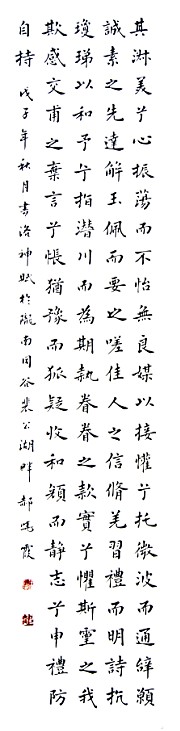 其淑美兮心振蕩而不怡無良媒以接懽兮托微波而通辭願
誠素之先達解玉佩而要之嗟佳人之信脩羌習禮而明詩抗
瓊珶以和予兮指潛川而為期執眷眷之款實兮懼斯靈之我
欺感交甫之棄言兮悵猶豫而狐疑收和顏而静志兮申禮防
自持 戊子年秋月書洛神賦於隴南同谷裴公湖畔 郝曉霞